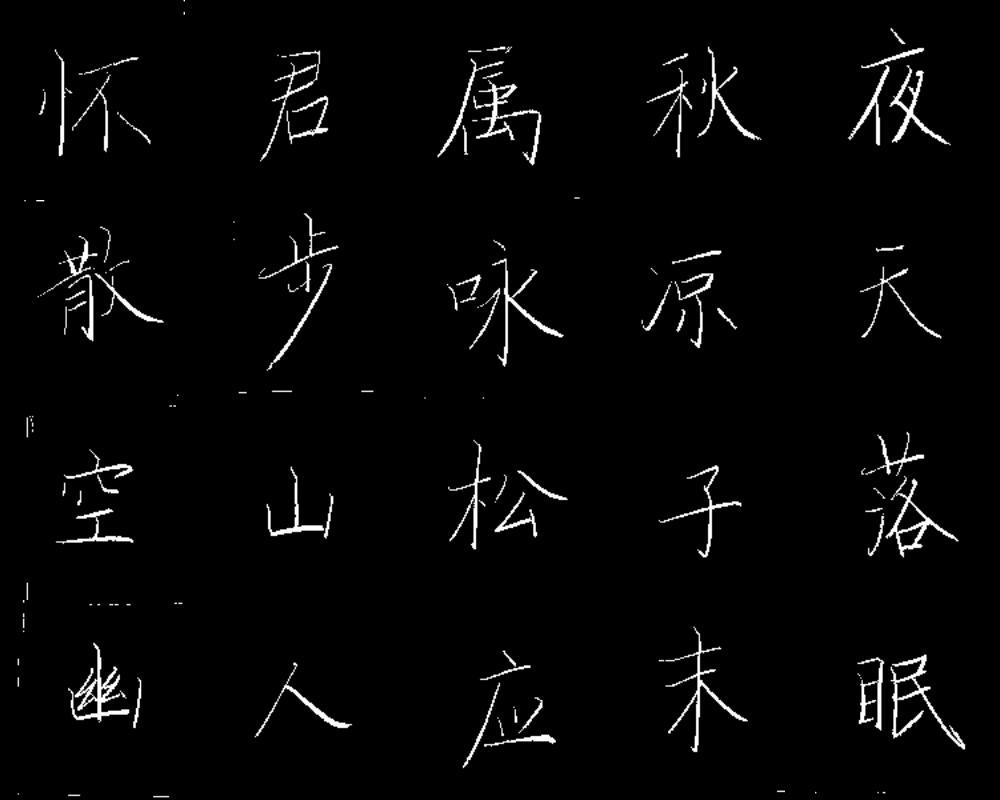 怀君属秋夜
散步咏凉天
空山松子落
幽人应末眠